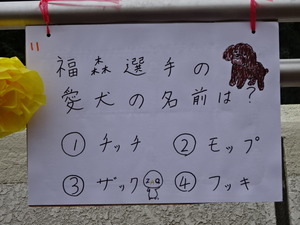 11
福森選手の
愛犬の名前は？
① チッチ ② モップ
③ ザック ④ フッキ